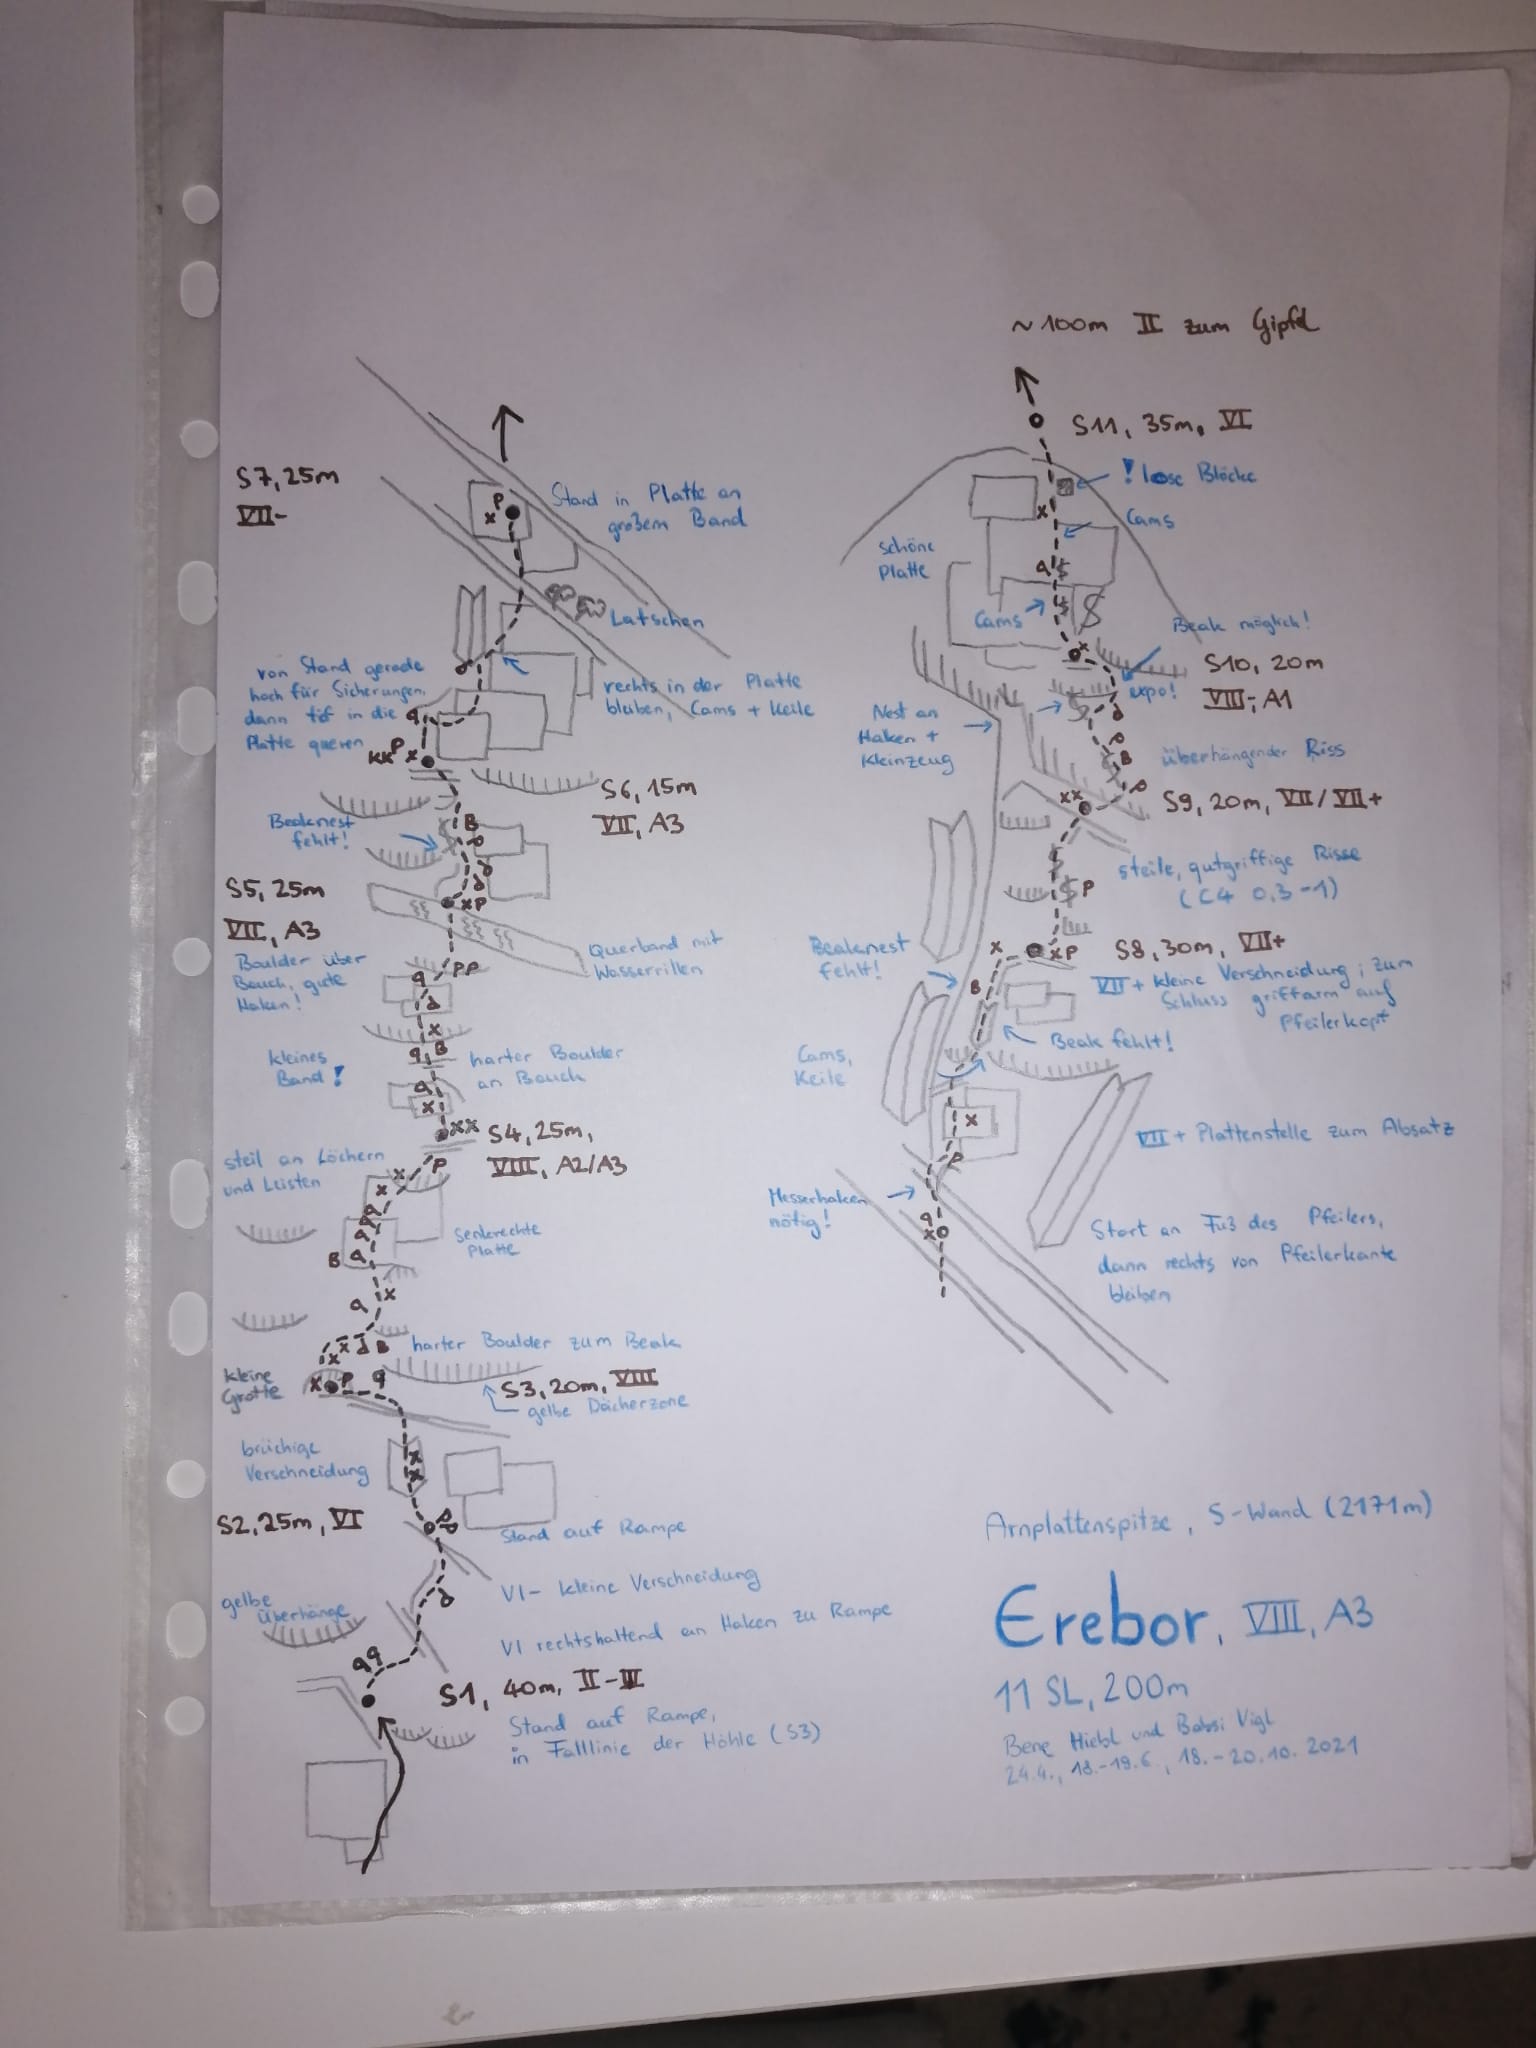 S7, 25m
VII-
Stand in Platte an
großem Band
P
x
Latschen
von Stand gerade
hoch für Sicherungen,
dann tief in die
Platte queren
rechts in der Platte
bleiben, Cams + Keile
KK P x
S6, 15m
VII, A3
Beaknest
fehlt!
B
S5, 25m
VII, A3
xP
Boulder über
Bauch, gute
Haken!
Querband mit
Wasserrillen
PP
x
B
kleines
Band!
harter Boulder
an Bauch
x
xx
S4, 25m,
VIII, A2/A3
P
steil an Löchern
und Leisten
x
x
senkrechte
Platte
B
x
x
x
B
harter Boulder zum Beak
kleine
Grotte
x P
S3, 20m, VIII
gelbe Dächerzone
brüchige
Verschneidung
x
x
S2, 25m, VI
Stand auf Rampe
VI- kleine Verschneidung
gelbe
Überhänge
VI rechtshaltend an Haken zu Rampe
S1, 40m, II-III
Stand auf Rampe,
in Falllinie der Höhle (S3)
~100m II zum Gipfel
S11, 35m, VI
! lose Blöcke
x
Cams
schöne
Platte
Cams
Beak möglich!
x
S10, 20m
VIII-, A1
expo!
Nest an
Haken +
Kleinzeug
B
überhängender Riss
xx
S9, 20m, VII/VII+
steile, gutgriffige Risse
(C4 0,3-1)
P
x
xP
S8, 30m, VII+
Beaknest
fehlt!
B
VII+ kleine Verschneidung; zum
Schluss griffarm auf
Pfeilerkopf
Beak fehlt!
Cams,
Keile
x
VII+ Plattenstelle zum Absatz
P
Messerhaken
nötig!
x
Start an Fuß des Pfeilers,
dann rechts von Pfeilerkante
bleiben
Arnplattenspitze, S-Wand (2171m)
Erebor, VIII, A3
11 SL, 200m
Bene Hiebl und Babsi Vigl
24.4., 18.-19.6., 18.-20.10.2021